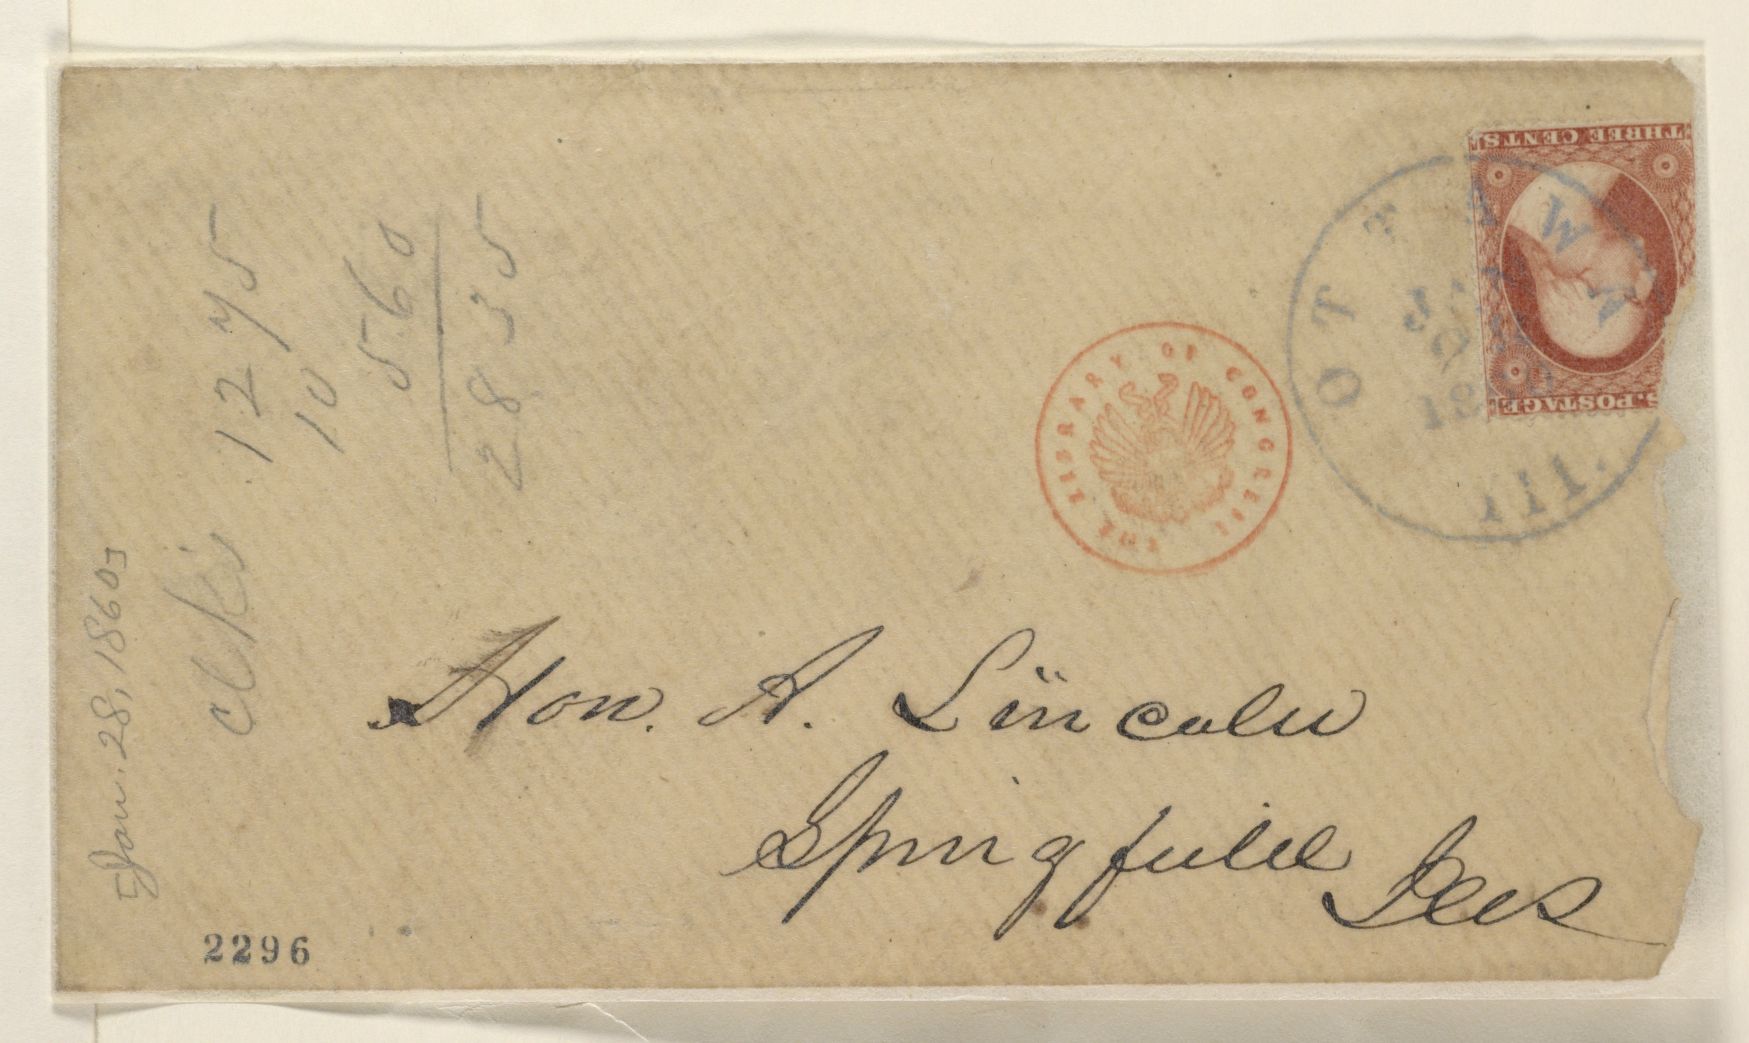 THREE CENTS
U.S. POSTAGE
OTTAWA
JAN
28
1860
Ill.
THE LIBRARY OF CONGRESS
Hon. A. Lincoln
Springfield Ills
2296
[Jan. 28, 1860]
1275
10
560
2835